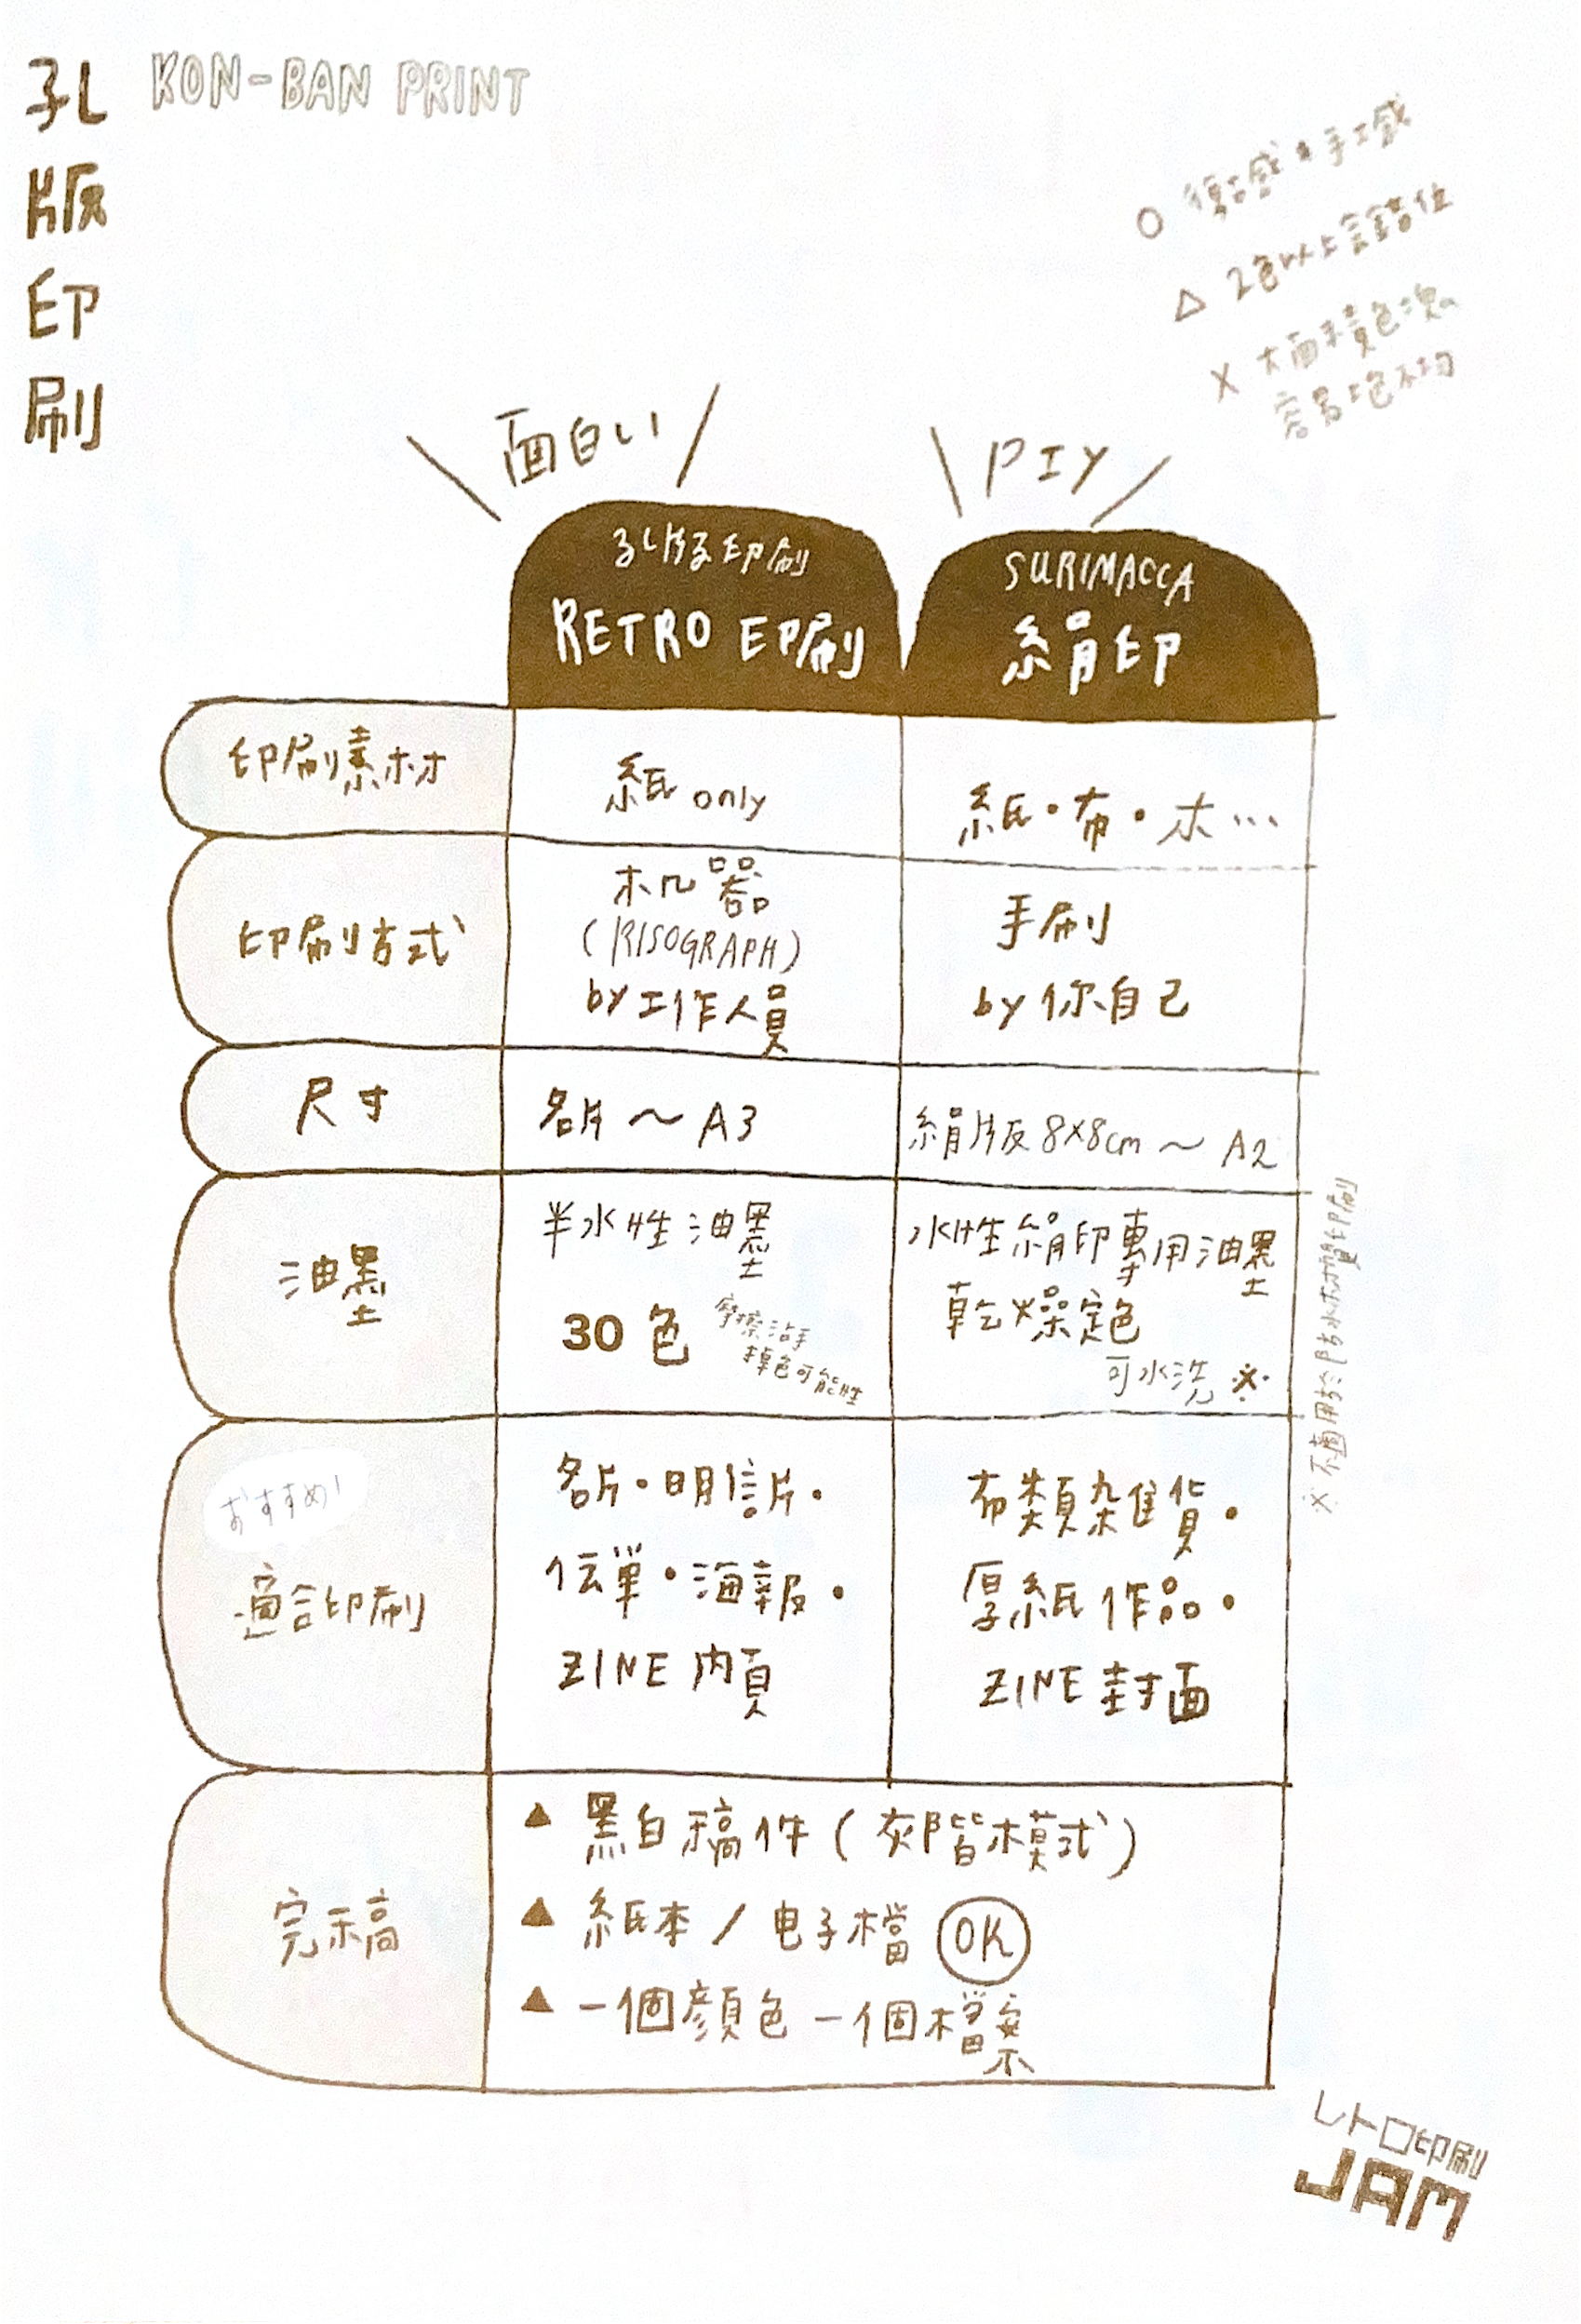 孔版印刷
KON-BAN PRINT
○ 復古感 & 手工感
△ 2色以上會錯位
× 大面積色塊
容易上色不均
面白い
PIY
孔版印刷
RETRO 印刷
SURIMACCA
絹印
印刷素材
紙 only
紙・布・木…
印刷方式
机器
(RISOGRAPH)
by 工作人員
手刷
by 你自己
尺寸
名片 ～ A3
絹版 8×8cm ～ A2
油墨
半水性油墨
30 色
摩擦沾手
掉色可能性
水性絹印專用油墨
乾燥定色
可水洗 ※
※不適用於防水材質印刷
おすすめ!
適合印刷
名片・明信片・
伝單・海報・
ZINE 內頁
布類雜貨・
厚紙作品・
ZINE 封面
完稿
▲ 黑白稿件 (灰階模式)
▲ 紙本 / 电子檔 OK
▲ 一個顏色一個檔案
レトロ印刷
JAM